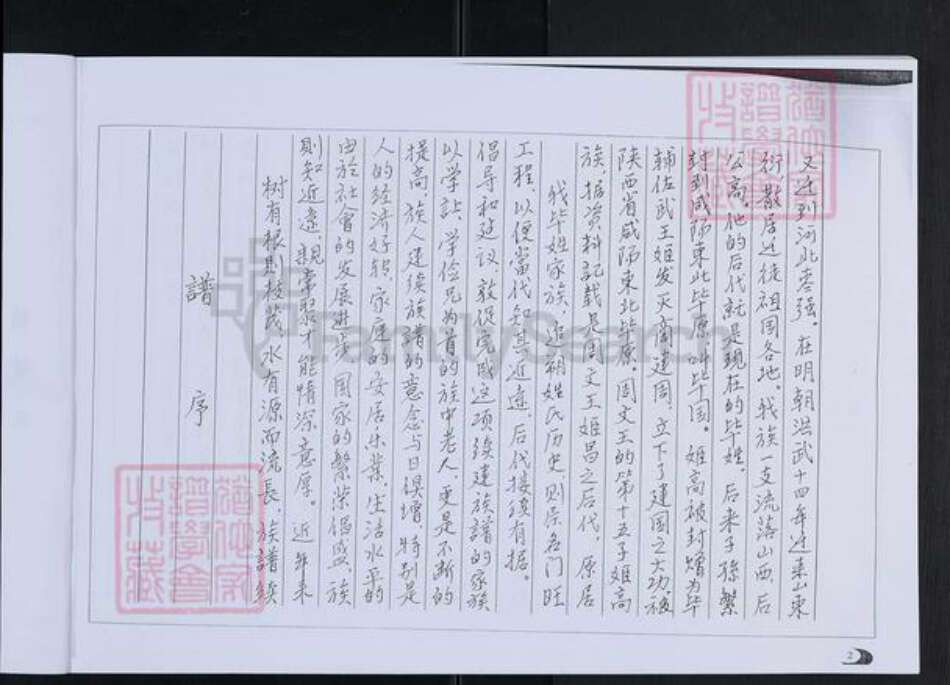 譜序
树有根則枝茂,水有源而流長,族譜续
則知近遠,親常聚才能情深意厚。近年来
由於社會的发展进步,国家的繁荣倡盛,族
人的经济好转,家庭的安居乐業,生活水平的
提高,族人建续族譜的意念与日俱增,特别是
以学詀、学俭兄为首的族中老人,更是不断的
倡导和建议,敦促完成这项续建族譜的家族
工程,以便當代知其近遠,后代接续有据。
我毕姓家族,追朔姓氏历史,則系名门旺
族,据资料記载是周文王姬昌之后代,原居
陕西省咸陽東北毕原。周文王的第十五子姬高
辅佐武王姬发灭商建周,立下了建国之大功,被
封到咸陽東北毕原,叫毕国。姬高被封爵为毕
公高,他的后代就是現在的毕姓。后来子孫繁
衍散居迁徙祖国各地。我族一支流落山西,后
又迁到河北枣强。在明朝洪武十四年迁来山東
2
猶他家譜學會收藏
猶他家譜學會收藏
FamilySearch